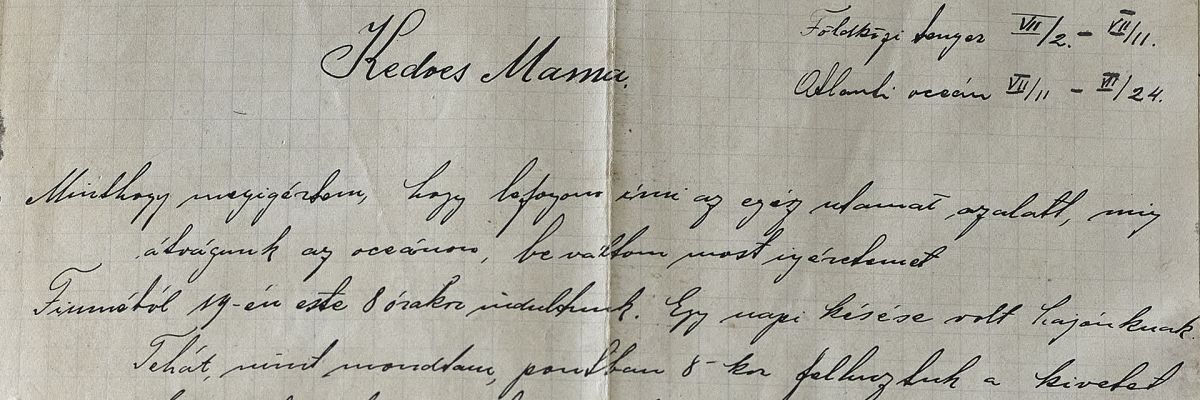 Földközi tenger VII/2. - VII/11.
Kedves Mama.
Atlanti oceán VII/11 - VII/24.
Minthogy megigértem, hogy lefogom irni az egész utamat azalatt, mig
átvágunk az oceánon, beváltom most igéretemet
Fiuméból 19-én este 8 órakor indultunk. Egy napi késése volt hajónknak.
Tehát, mint mondtam, pontban 8-kor felhuztuk a